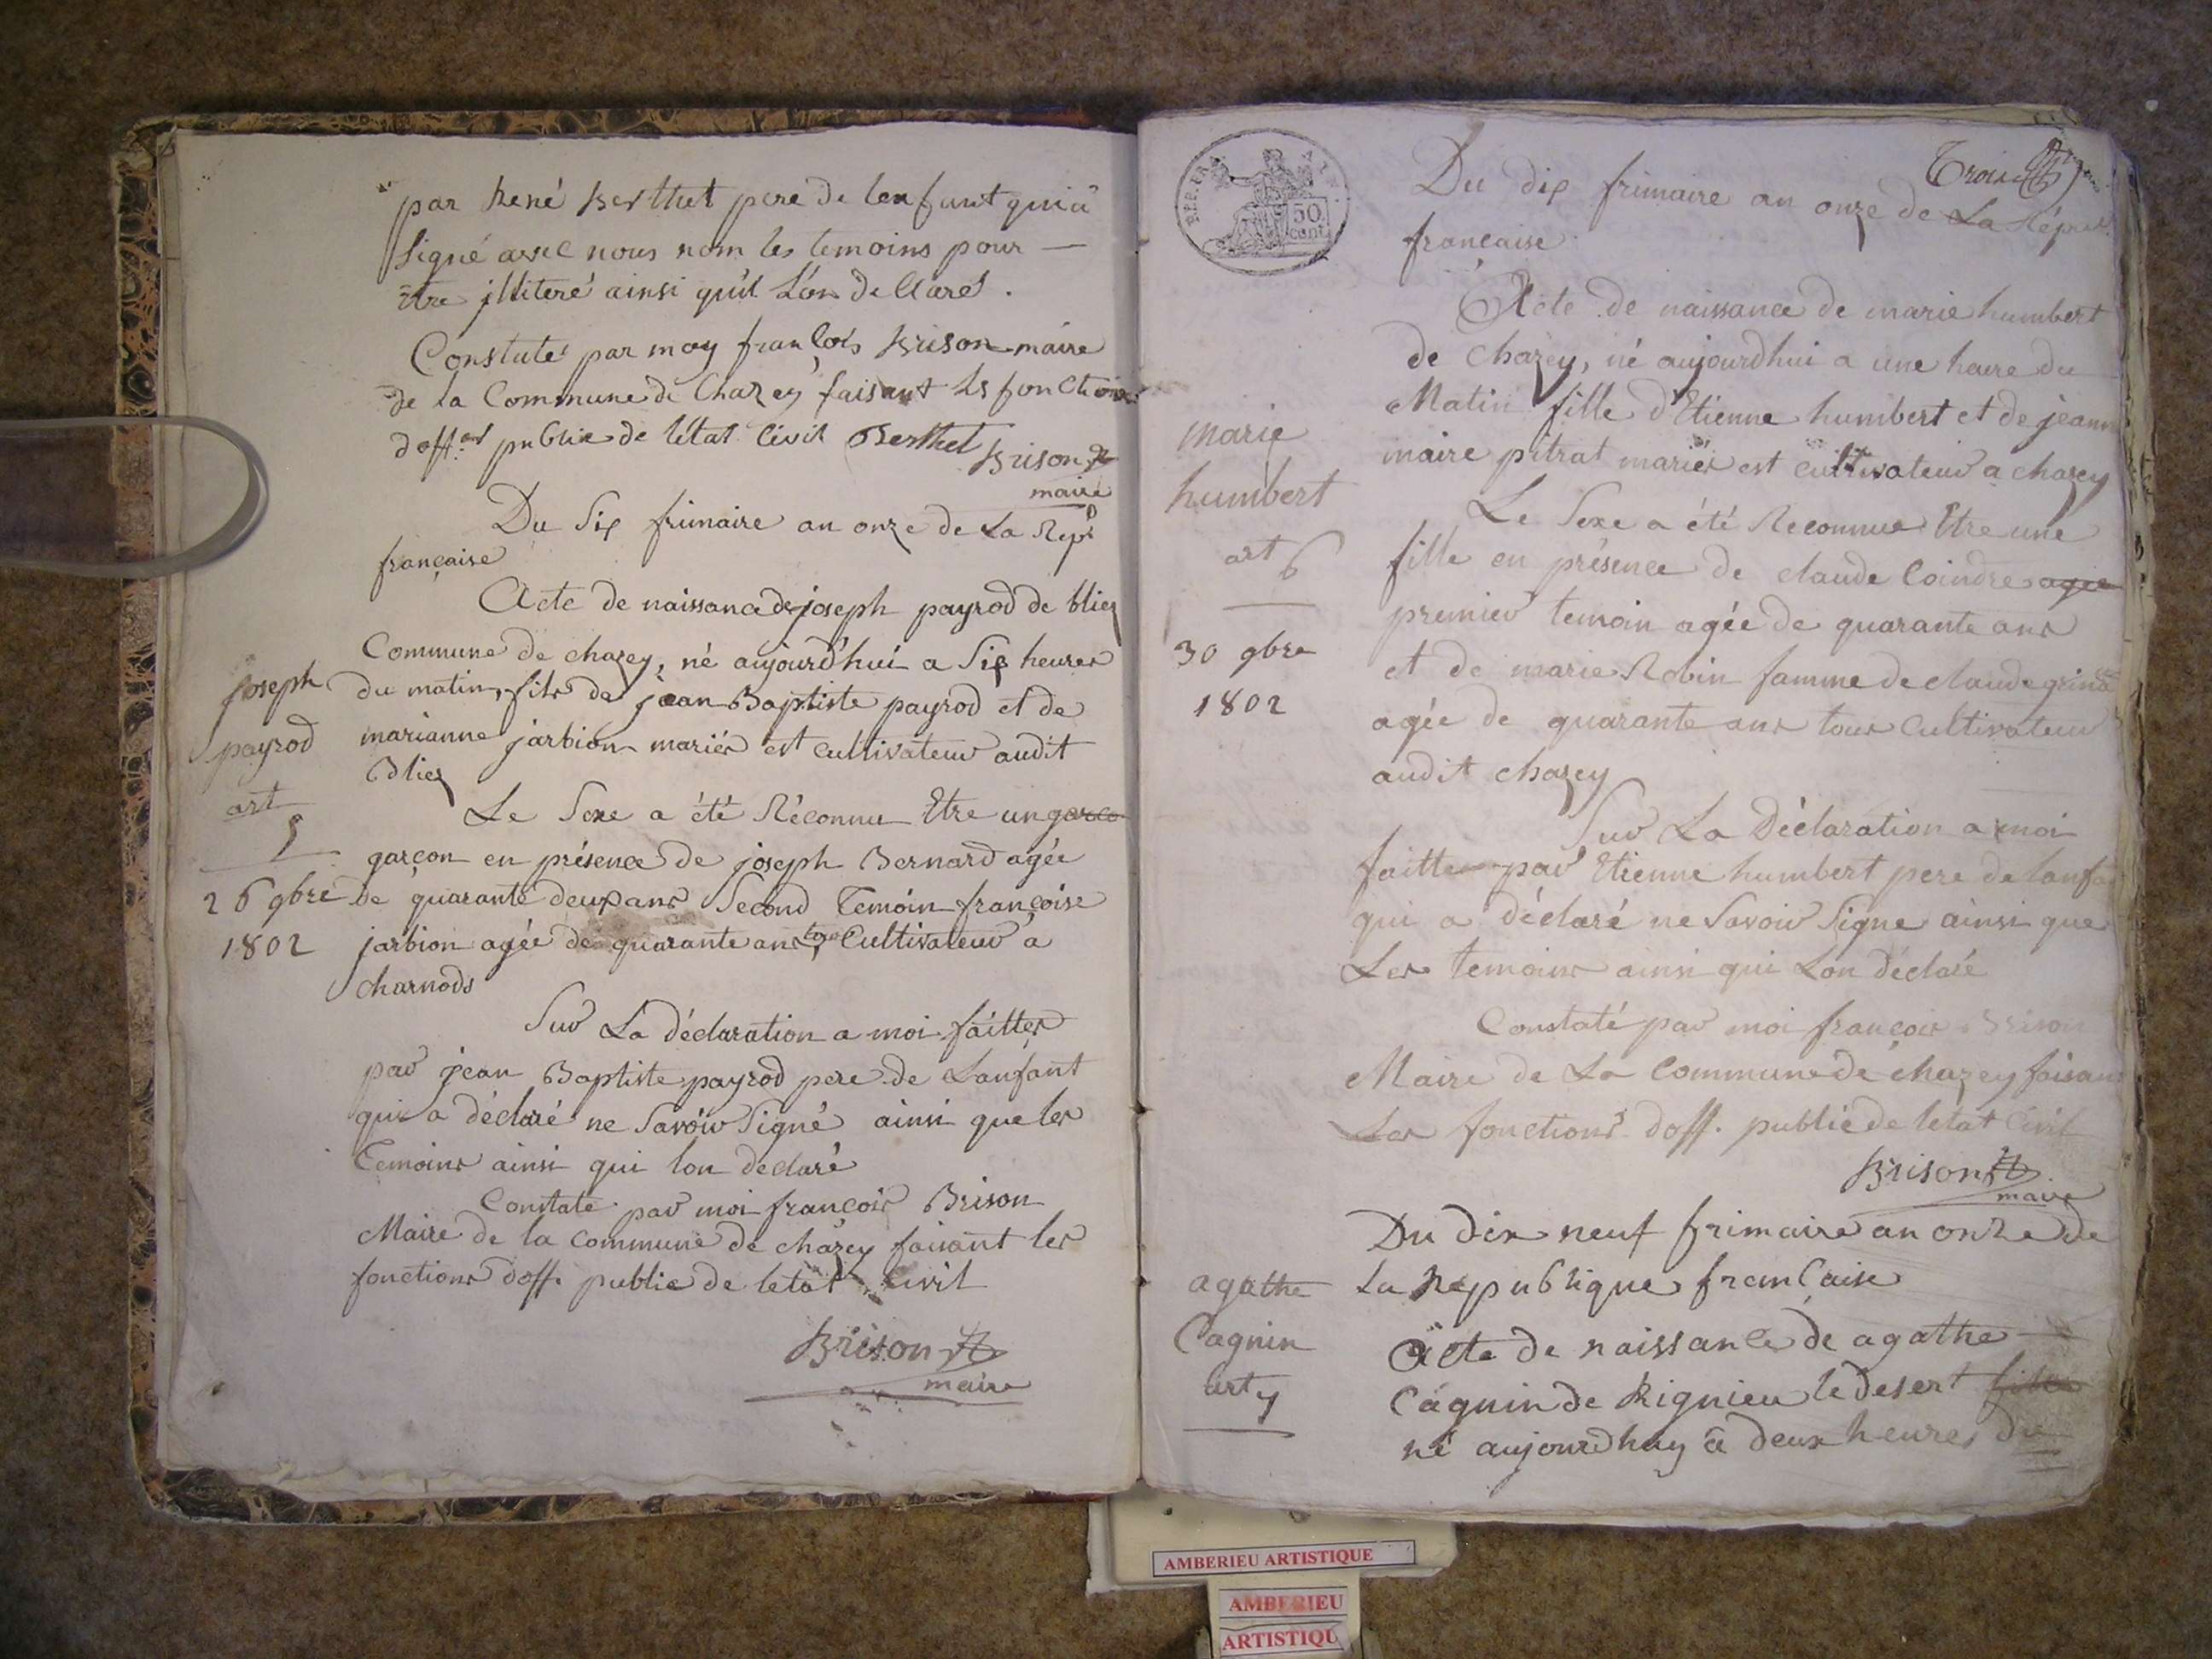 par René Berthet pere de lenfant qui a
signé avec nous nom les temoins pour —
être jlliteré ainsi quil L'on declaré.
Constaté par moy françois Brison maire
de la Commune de Chazey faisant les fonction
d'off.er public de l'état civil Berthet Brison
maire
Du six frimaire an onze de La Rép.
française
Acte de naissance de joseph payrod de blies
Commune de chazey, né aujourd'hui a six heures
du matin, fils de jean Baptiste payrod et de
marianne jarbion mariés est cultivateur audit
Blies
Le Sexe a été Réconnu Etre un garco
garçon en présence de joseph Bernard agée
de quarante deux ans Second Temoin françoise
jarbion agée de quarante ans Cultivateur a
charnods
Sur La déclaration a moi faittes
par jean Baptiste payrod pere de Lanfant
qui a déclaré ne Savoir Signé ainsi que les
Temoins ainsi qui lon declaré
Constaté par moi françois Brison
Maire de la Commune de chazey faisant les
fonctions d'off. public de letat civil
Brison
maire
joseph
payrod
art
5
26 9bre
1802
REP. FRA.
50
cent.
Trois
Du dix frimaire an onze de La Répub.
française
Acte de naissance de marie humbert
de Chazey, né aujourdhui a une heure du
Matin fille d'Etienne humbert et de jeann
maire pitrat mariés est cultivateur a chazey
Le Sexe a été Reconnue Etre une
fille en présence de claude Coindre agée
premier temoin agée de quarante ans
et de marie Robin famme de claude grina
agée de quarante ans tous Cultivateur
audit chazey
Sur La Déclaration a moi
faitte par Etienne humbert pere de lanfa
qui a déclaré ne Savoir Signe ainsi que
Les temoins ainsi qui Lon déclaré
Constaté par moi françois Brison
Maire de La Commune de chazey faisant
Les fonctions d'off. public de létat Civil
Brison
maire
Du dix neuf frimaire an onze de
La Republique française
Acte de naissance de agathe
Cagnin de Rignieu le desert fille
né aujourdhuy a deux heures du
marie
humbert
art 6
30 9bre
1802
agathe
Cagnin
art 7
AMBERIEU ARTISTIQUE
AMBERIEU
ARTISTIQU